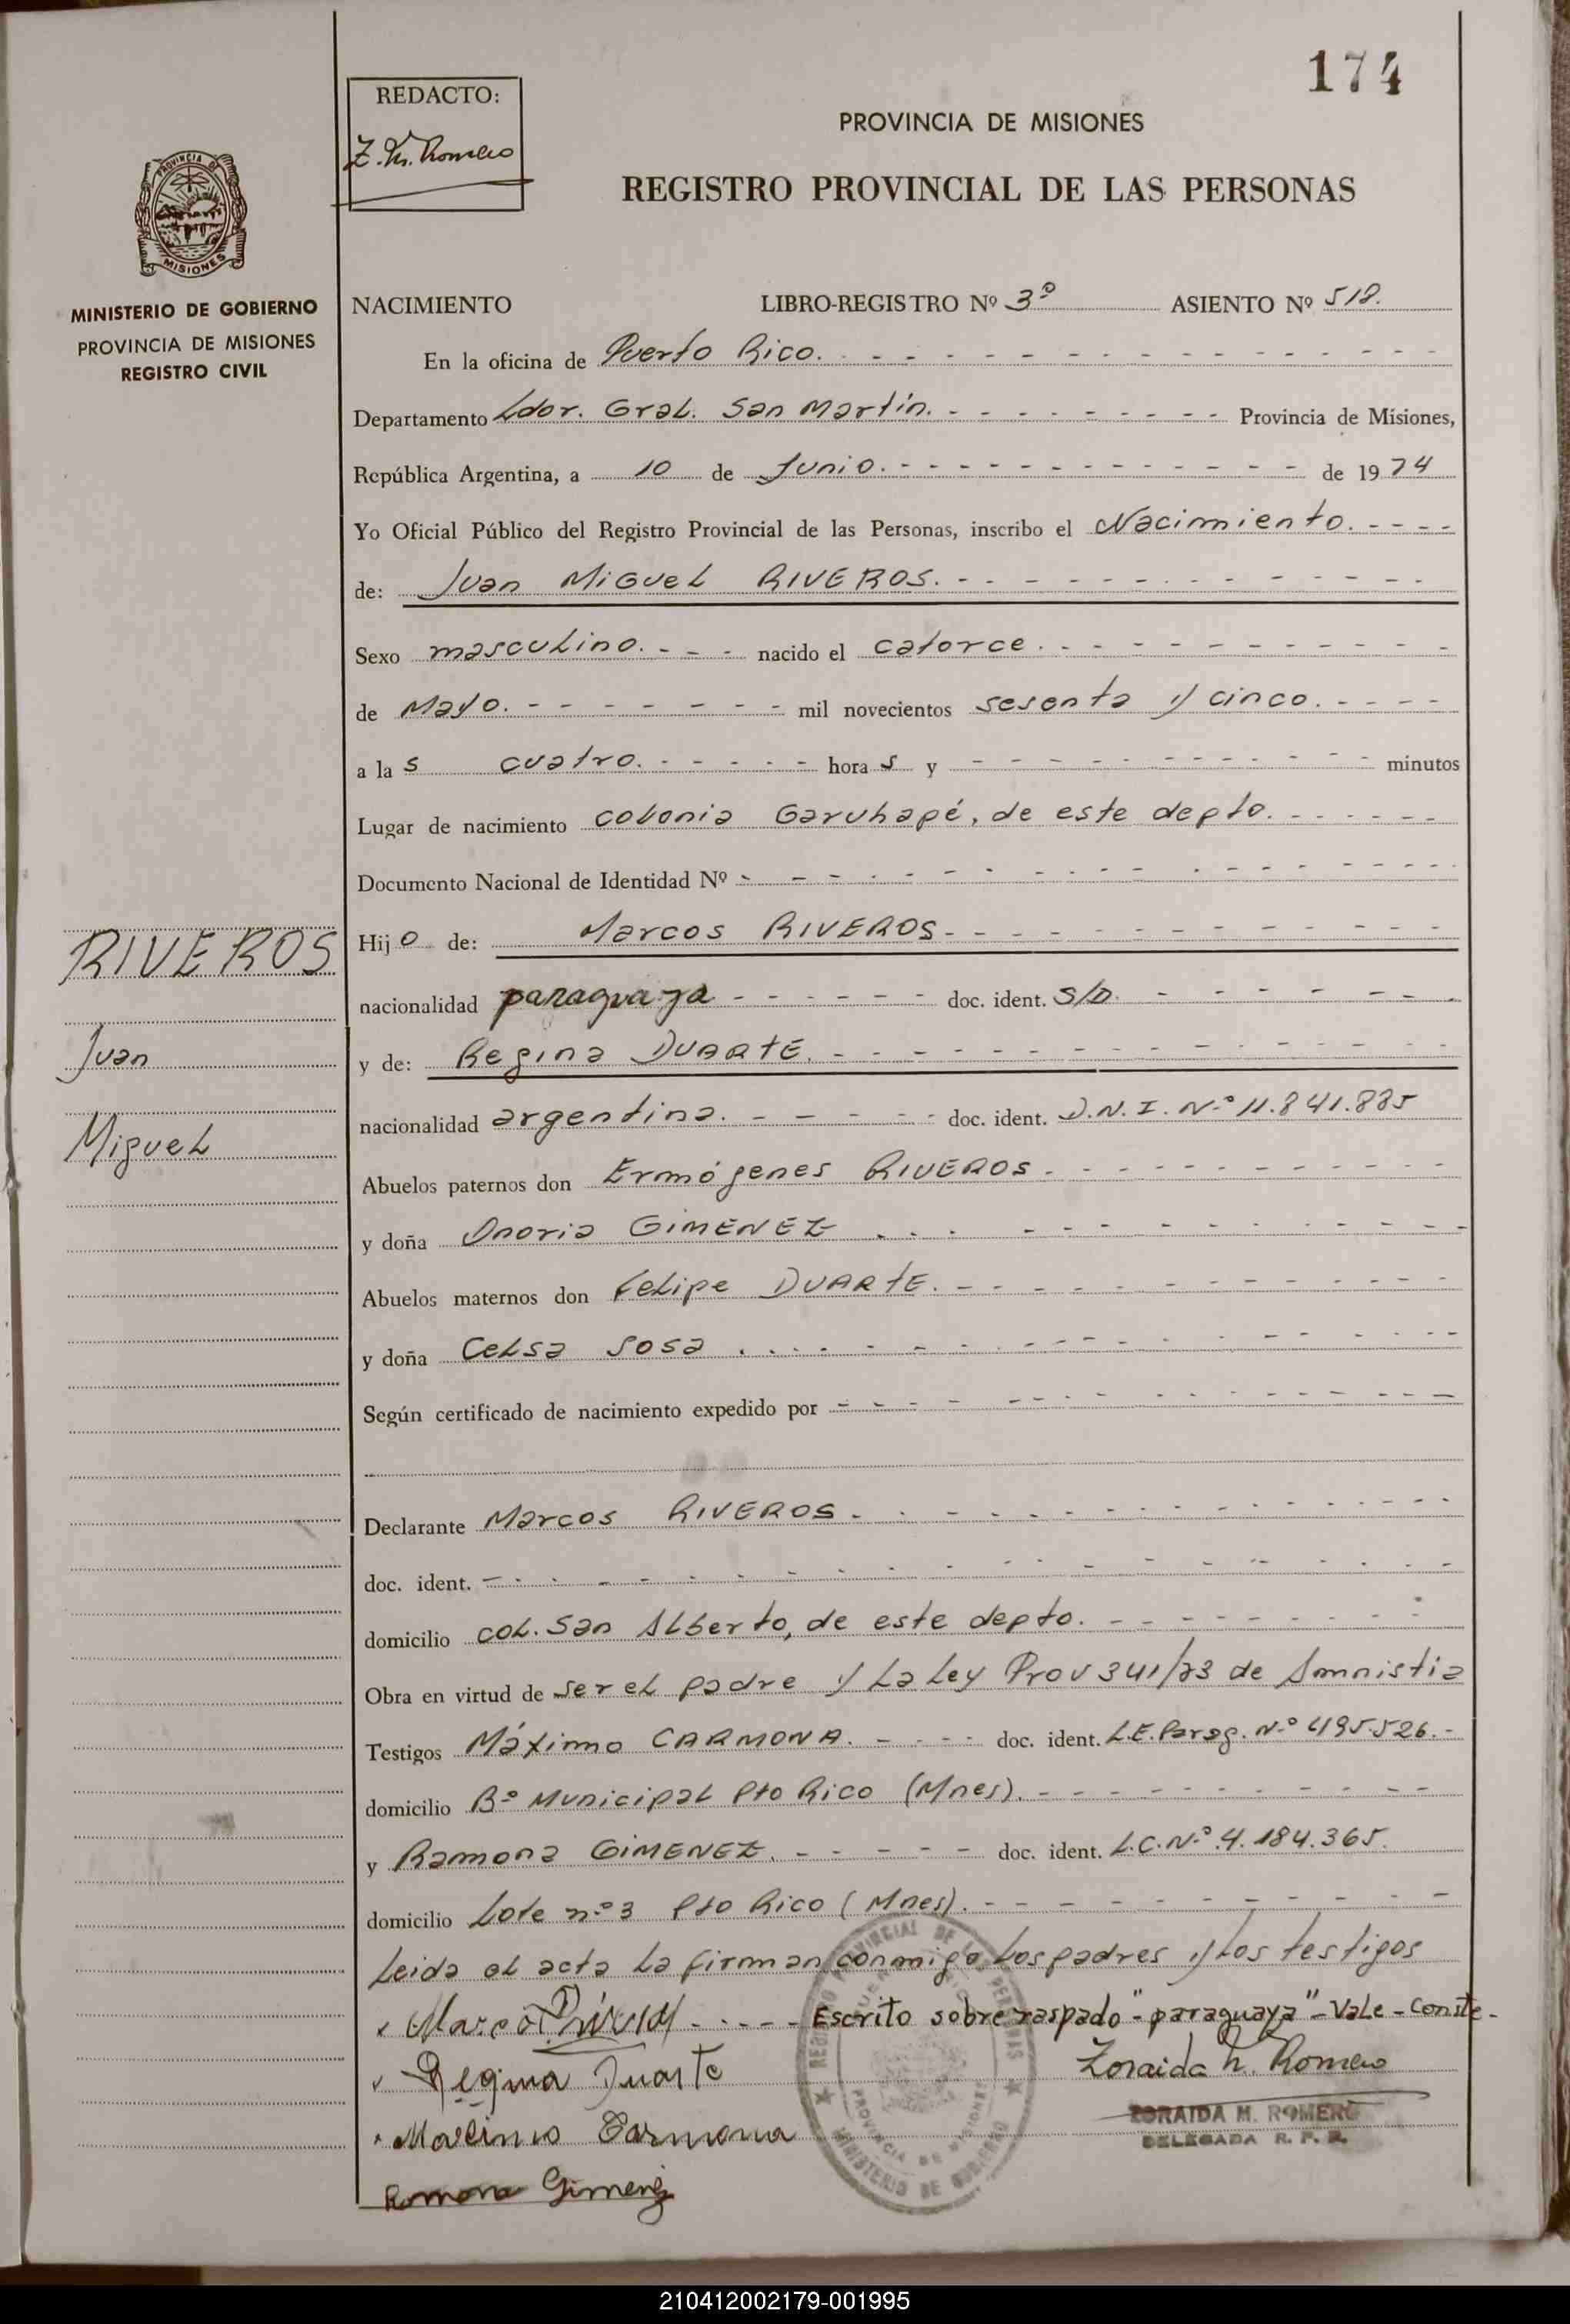 174
REDACTO:
Z. M. Romero
PROVINCIA DE MISIONES
REGISTRO PROVINCIAL DE LAS PERSONAS
PROVINCIA DE
MISIONES
MINISTERIO DE GOBIERNO
PROVINCIA DE MISIONES
REGISTRO CIVIL
NACIMIENTO LIBRO-REGISTRO Nº 3º ASIENTO Nº 518.
En la oficina de Puerto Rico.
Departamento Ldor. Gral. San Martín. Provincia de Misiones,
República Argentina, a 10 de Junio. de 1974
Yo Oficial Público del Registro Provincial de las Personas, inscribo el Nacimiento.
de: Juan Miguel RIVEROS.
Sexo masculino. nacido el catorce.
de Mayo. mil novecientos sesenta y cinco.
a las cuatro. horas y minutos
Lugar de nacimiento colonia Garuhapé, de este depto.
Documento Nacional de Identidad Nº
RIVEROS
Juan
Miguel
Hijo de: Marcos RIVEROS
nacionalidad paraguaya doc. ident. S/D.
y de: Regina DUARTE.
nacionalidad argentina. doc. ident. D.N.I. Nº 11.841.885
Abuelos paternos don Ermógenes RIVEROS.
y doña Onoria GIMENEZ
Abuelos maternos don Felipe DUARTE.
y doña Celsa Sosa
Según certificado de nacimiento expedido por
Declarante Marcos RIVEROS.
doc. ident.
domicilio col. San Alberto, de este depto.
Obra en virtud de ser el padre y la Ley Prov 341/73 de Amnistia
Testigos Máximo CARMONA. doc. ident. L.E. Parag. Nº 495.526.
domicilio Bº Municipal Pto Rico (Mnes).
y Ramona GIMENEZ. doc. ident. L.C. Nº 4.184.365.
domicilio Lote nº 3 Pto Rico (Mnes).
Leida el acta la firman conmigo los padres y los testigos
Escrito sobre raspado "paraguaya" - Vale - Conste -
Regina Duarte
Zoraida M. Romero
ZORAIDA M. ROMERO
DELEGADA R. P. P.
Macimo Carmona
Ramona Gimenez
REGISTRO PROVINCIAL DE LAS PERSONAS
PROVINCIA DE MISIONES
MINISTERIO DE GOBIERNO
210412002179-001995